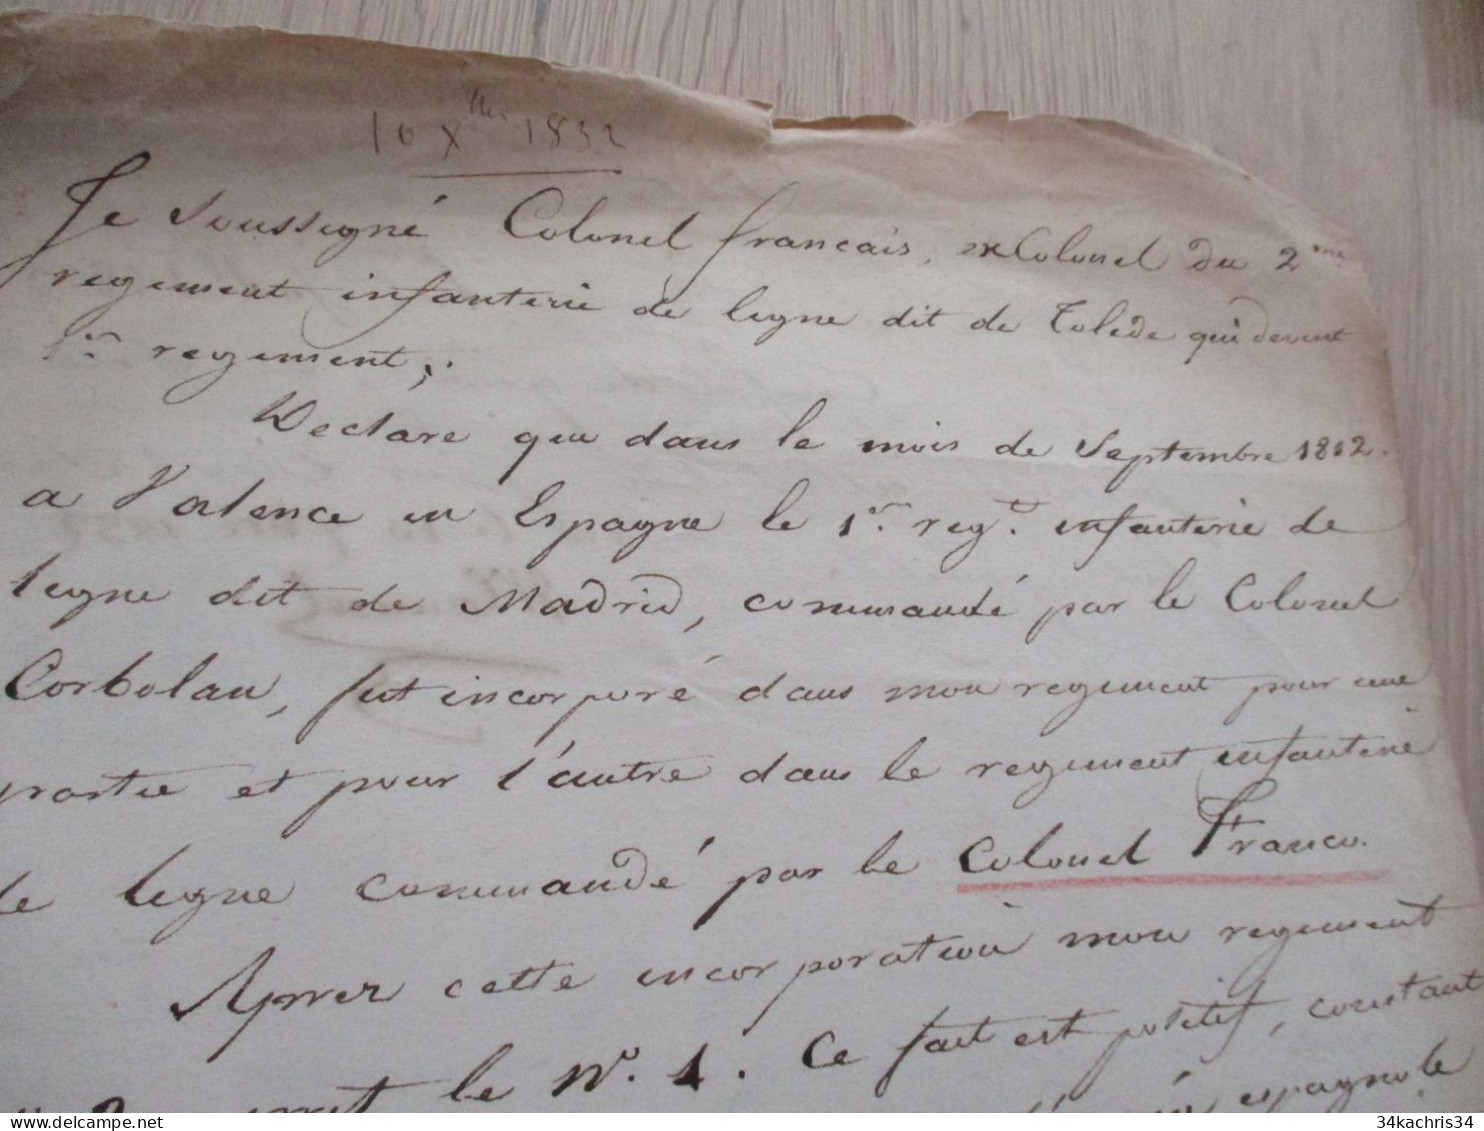 10 Xbre 1832
Je soussigné Colonel francais, ex Colonel du 2me
regiment infanterie de ligne dit de Tolede qui devint
1er regiment;
Declare que dans le mois de Septembre 1812.
a Valence en Espagne le 1er regt. infanterie de
ligne dit de Madrid, commandé par le Colonel
Corbolan, fut incorporé dans mon regiment pour une
partie et pour l'autre dans le regiment infanterie
de ligne commandé par le Colonel Franco.
Aprrez cette incorporation mon regiment
prit le No. 1. Ce fait est positif, constant
espagnole
34kachris34
delcampe.net